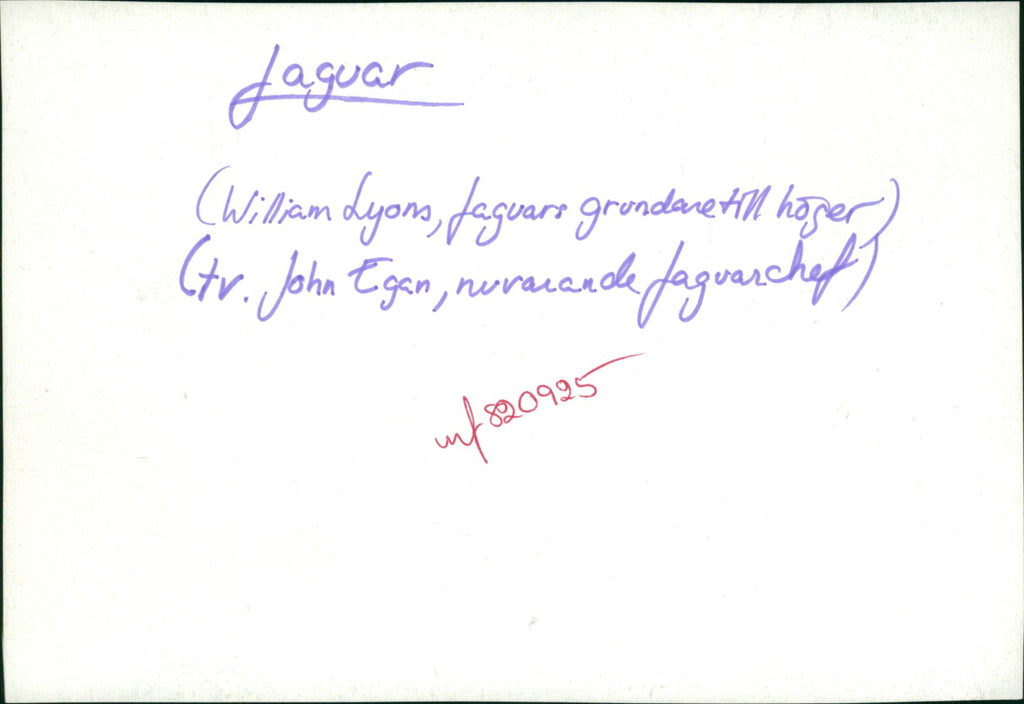 Jaguar
(William Lyons, Jaguars grundare till höger)
(tv. John Egan, nuvarande Jaguarchef)
mf 820925